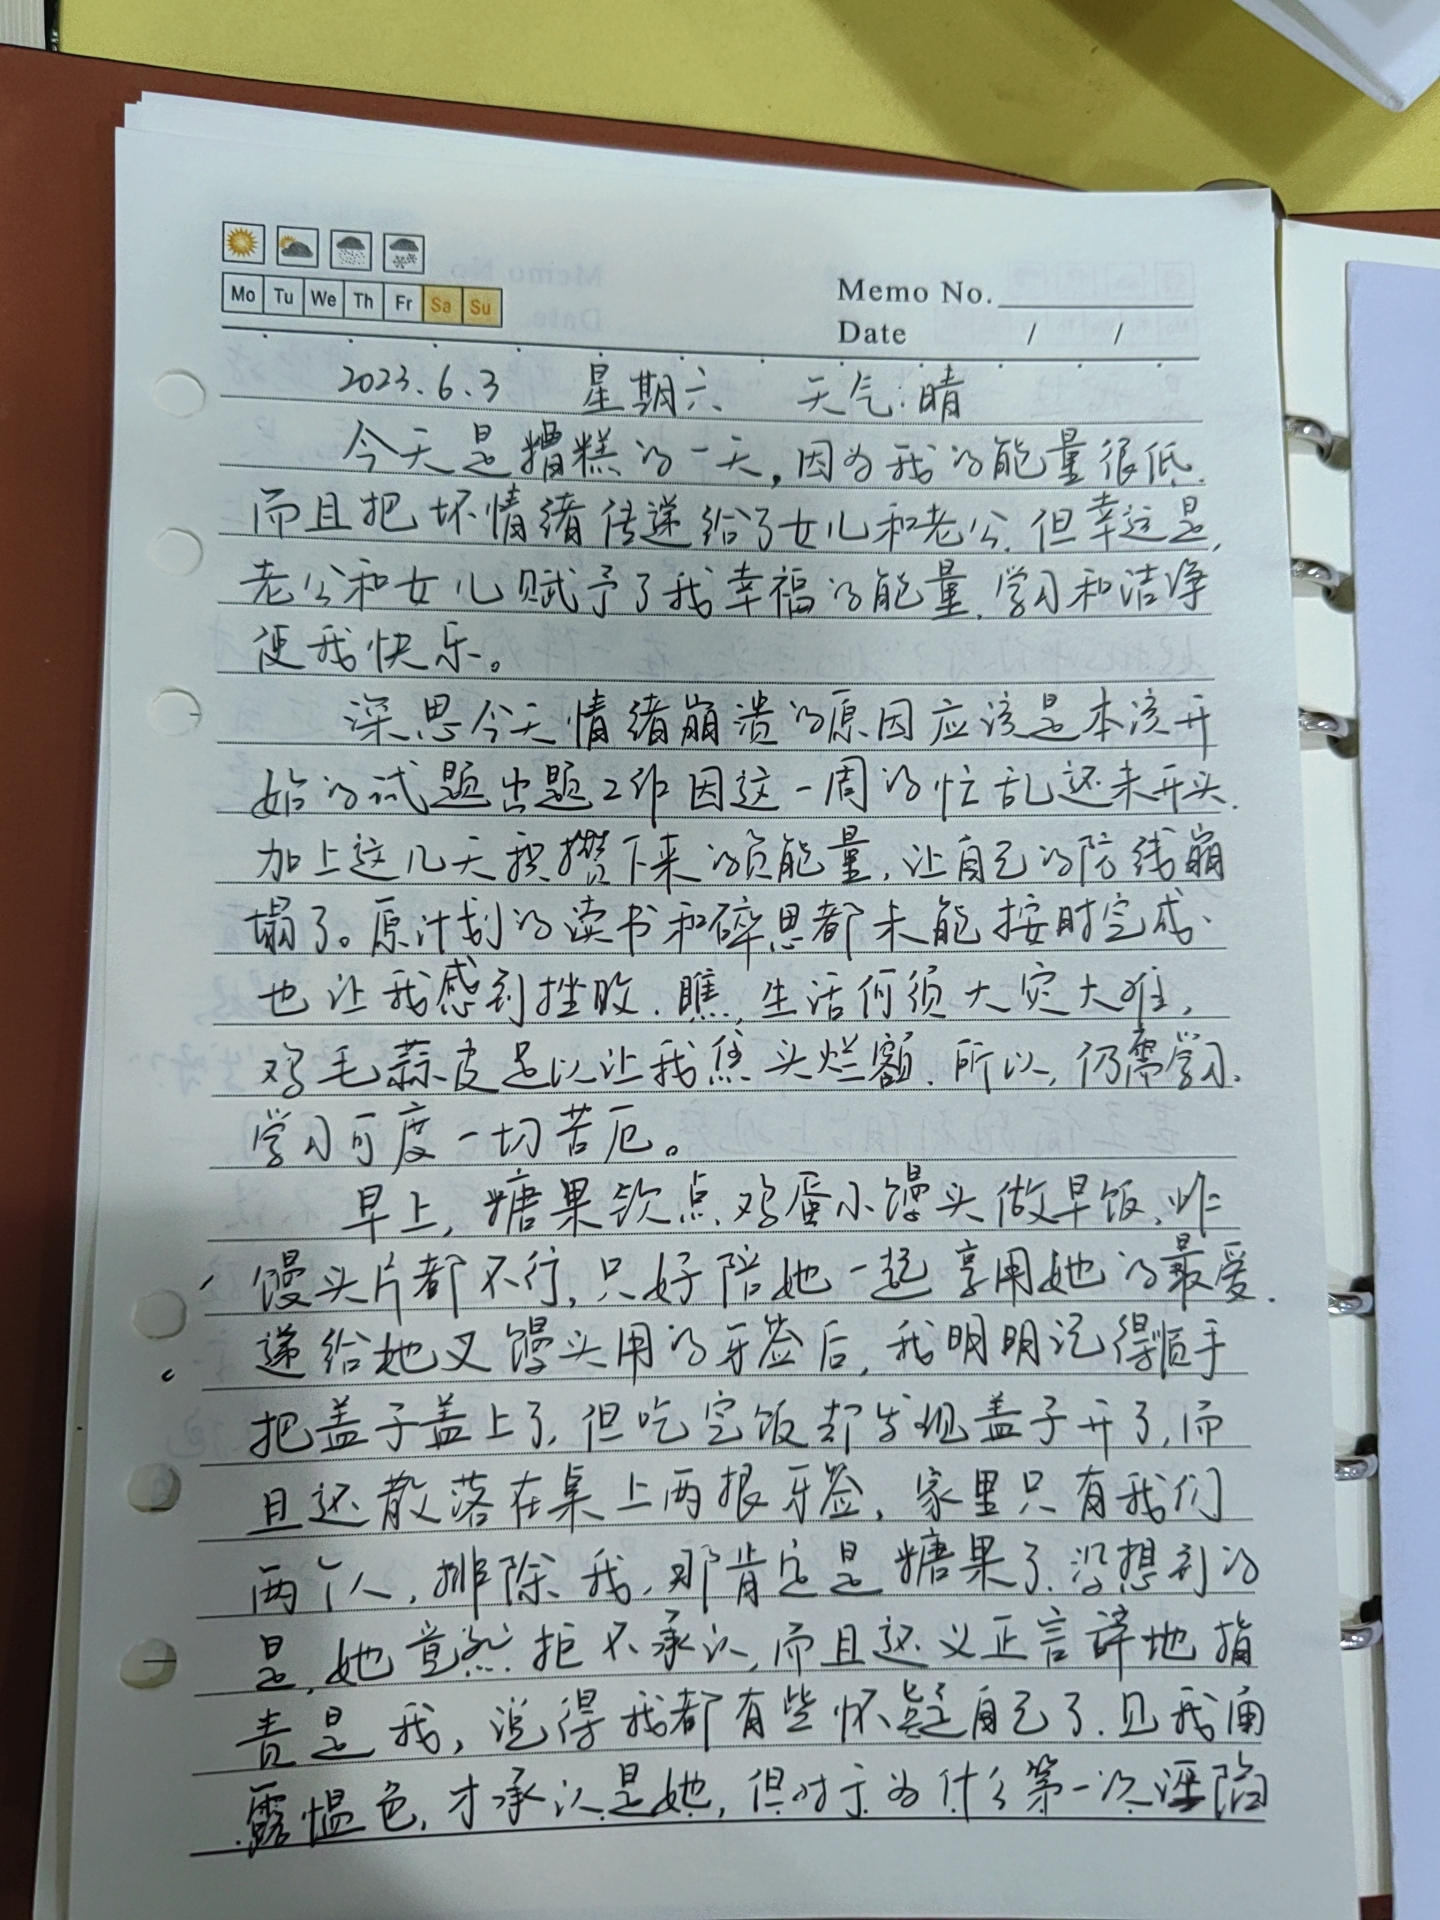 Mo Tu We Th Fr Sa Su
Memo No.
Date / /
2023.6.3 星期六 天气:晴
今天是糟糕的一天,因为我的能量很低,
而且把坏情绪传递给了女儿和老公,但幸运是,
老公和女儿赋予了我幸福的能量,学习和洁净
使我快乐。
深思今天情绪崩溃的原因应该是本该开
始的试题出题工作因这一周的忙乱还未开头,
加上这几天积攒下来的负能量,让自己的防线崩
塌了。原计划的读书和碎思都未能按时完成,
也让我感到挫败.瞧,生活何须大灾大难,
鸡毛蒜皮足以让我焦头烂额.所以,仍需学习,
学习可度一切苦厄。
早上,糖果钦点鸡蛋小馒头做早饭,炸
馒头片都不行,只好陪她一起享用她的最爱.
递给她叉馒头用的牙签后,我明明记得顺手
把盖子盖上了,但吃完饭却发现盖子开了,而
且还散落在桌上两根牙签,家里只有我们
两个人,排除我,那肯定是糖果了.没想到的
是,她竟然拒不承认,而且还义正言辞地指
责是我,说得我都有些怀疑自己了.见我面
露愠色,才承认是她,但对于为什么第一次诬陷